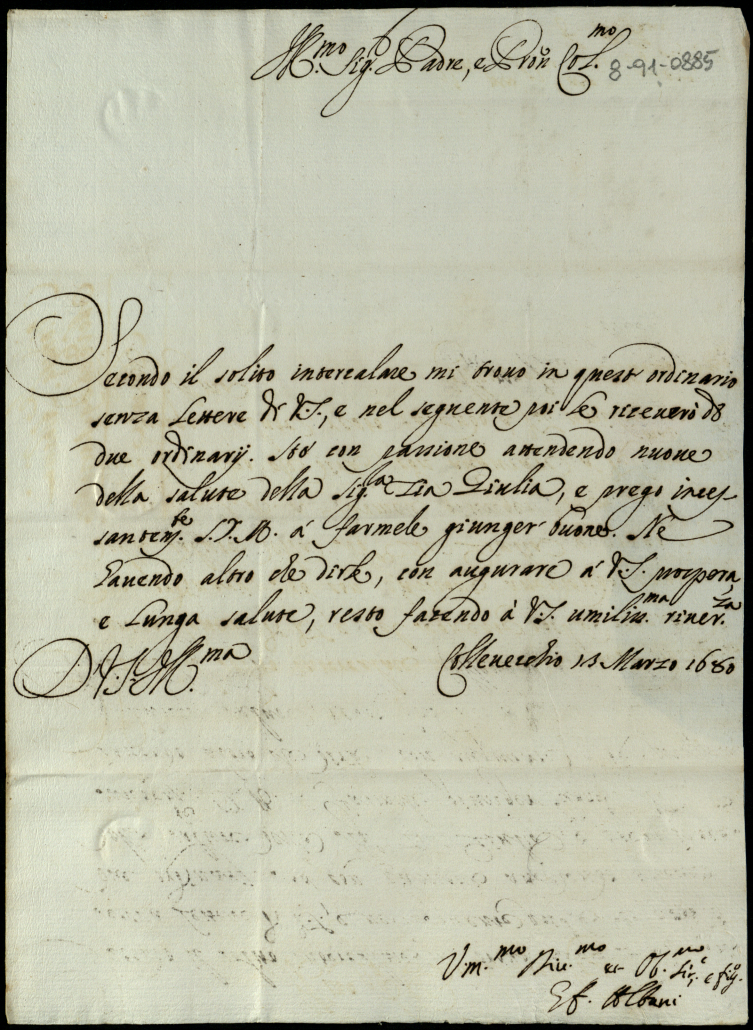 Ill.mo Sig.r Padre, e Pron Col.mo
8-91-0885
Secondo il solito intercalare mi trovo in quest ordinario
senza Lettere di V.S., e nel seguente poi le riceverò di
due ordinarij. Stò con passione attendendo nuove
della salute della Sig.ra Zia Giulia, e prego inces
santem.te S.D.M. á farmele giunger buone. Nè
havendo altro che dirle, con augurare á V.S. prospera,
e Lunga salute, resto facendo à V.S. umiliss.ma river.za
D V.S. Ill.ma
Collevecchio 13 Marzo 1680
Um.mo Div.mo et Ob.mo Ser.e e fig.o
Albani